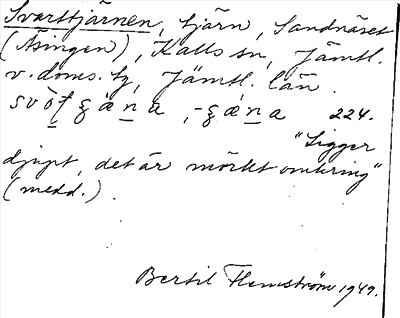 Svarttjärnen, tjärn, Sandnäset
(Åsingen), Kalls sn, Jämtl.
v. doms. tg, Jämtl. län.
224.
"Ligger
djupt, det är mörkt omkring"
(medd.).
Bertil Flemström 1949.